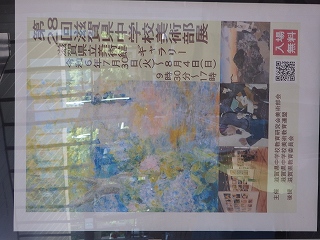 第28回滋賀県中学校美術部展
滋賀県立美術館 ギャラリー
令和6年7月30日(火)~8月4日(日)
9時30分~17時
入場
無料
主催 滋賀県中学校教育研究会美術部会
滋賀県中学校美術教育連盟
後援 滋賀県教育委員会